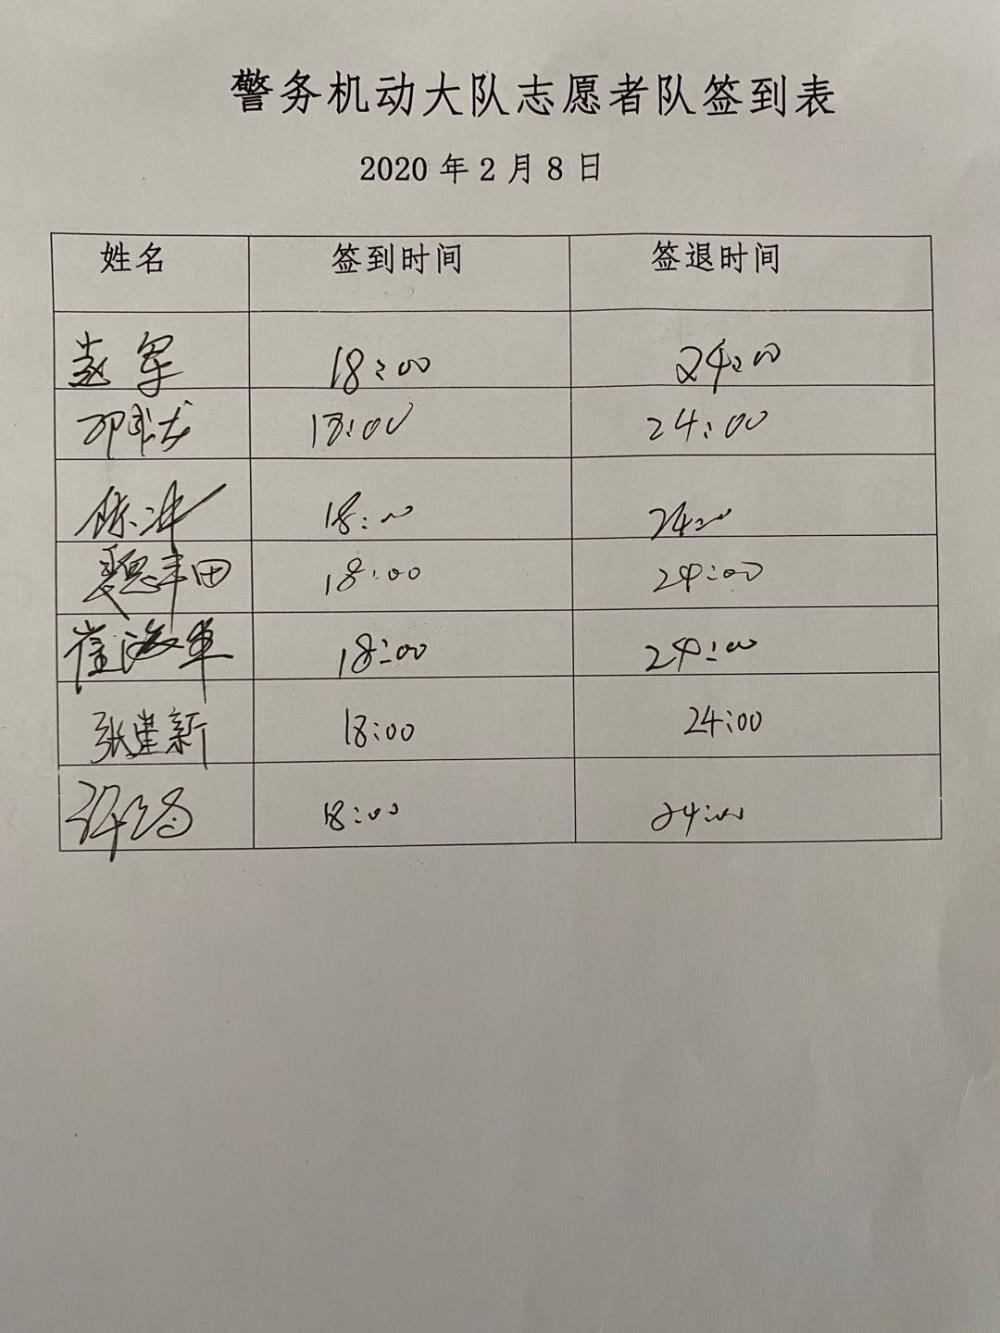 警务机动大队志愿者队签到表
2020 年 2 月 8 日
姓名 签到时间 签退时间
赵军 18:00 24:00
18:00 24:00
陈冲 18:00 24:00
18:00 24:00
崔海军 18:00 24:00
张建新 18:00 24:00
18:00 24:00